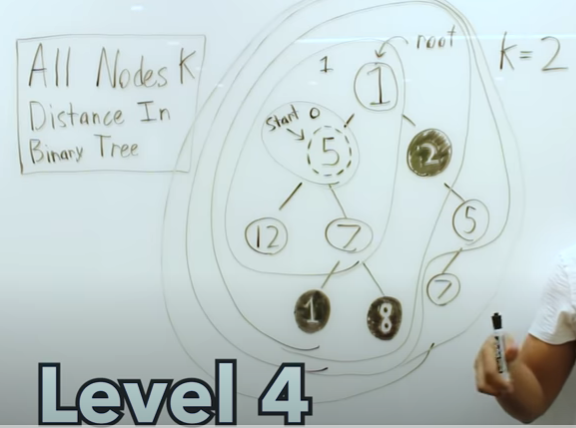 All Nodes K
Distance In
Binary Tree
root
K=2
1
1
Start 0
5
2
12
7
5
7
1
8
Level 4